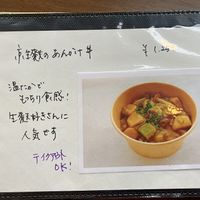 京生麩のあんかけ丼
¥1,25
温たかで
もっちり食感!
生麩好きさんに
人気です
テイクアウト
OK!